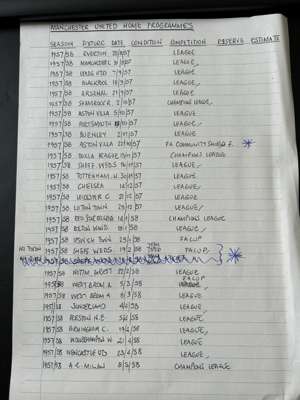 MANCHESTER UNITED HOME PROGRAMMES
SEASON FIXTURE DATE CONDITION COMPETITION RESERVE ESTIMATE
1957/58 EVERTON 57 LEAGUE
1957/58 MANCHESTER C 57 LEAGUE
1957/58 LEEDS UTD 7/9/57 LEAGUE
1957/58 BLACKPOOL 57 LEAGUE
1957/58 ARSENAL 21/9/57 LEAGUE
1957/58 SHAMROCK R 2/10/57 CHAMPIONS LEAGUE
1957/58 ASTON VILLA 5/10/57 LEAGUE
1957/58 PORTSMOUTH 10/57 LEAGUE
1957/58 BURNLEY 2/11/57 LEAGUE
1957/58 ASTON VILLA 22/10/57 FA COMMUNITY SHIELD F.
1957/58 DUKLA PRAGUE 11/57 CHAMPIONS LEAGUE
1957/58 SHEFF WEDS 57 LEAGUE
1957/58 TOTTENHAM H. 30/11/57 LEAGUE
1957/58 CHELSEA 14/12/57 LEAGUE
1957/58 LEICESTER C 21/12/57 LEAGUE
1957/58 LUTON TOWN 25/12/57 LEAGUE
1957/58 RED STAR BELGRADE 14/1/58 CHAMPIONS LEAGUE
1957/58 BOLTON WAND 18/1/58 LEAGUE
1957/58 IPSWICH TOWN 25/1/58 FA CUP
1957/58 SHEFF WEDS. 19/2/58 FA CUP
1957/58 NOTTM FOREST 22/2/58 LEAGUE
FA CUP
1957/58 WEST BROM A 5/3/58
1957/58 WEST BROM A 8/3/58 LEAGUE
1957/58 SUNDERLAND 58 LEAGUE
1957/58 PRESTON N.E 5/4/58 LEAGUE
1957/58 BIRMINGHAM C. 58 LEAGUE
1957/58 WOLVERHAMPTON W 21/4/58 LEAGUE
1957/58 NEWCASTLE UD 23/4/58 LEAGUE
1957/58 A.C. MILAN 8/5/58 CHAMPIONS LEAGUE